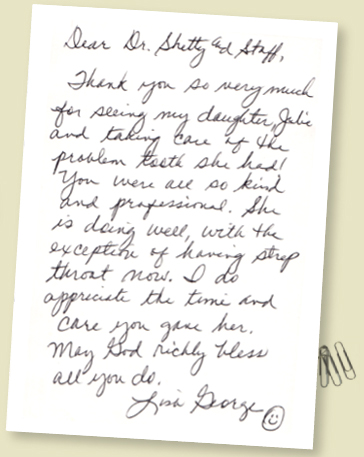 Dear Dr. Shetty and Staff,
Thank you so very much
for seeing my daughter, Julie
and taking care of the
problem tooth she had!
You were all so kind
and professional. She
is doing well, with the
exception of having strep
throat now. I do
appriciate the time and
care you gave her.
May God richly bless
all you do.
Lisa George